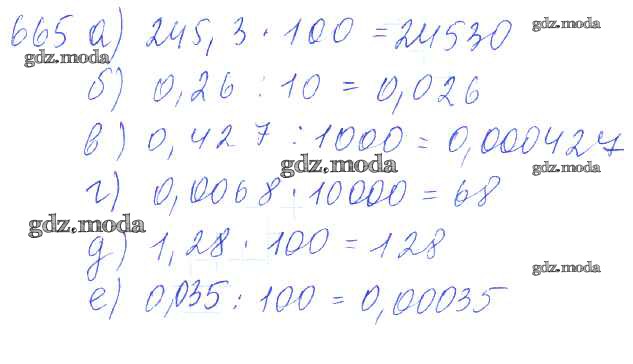 665 а) 245,3 · 100 = 24530
gdz.moda gdz.moda
б) 0,26 : 10 = 0,026
в) 0,427 : 1000 = 0,000427
gdz.moda gdz.moda
г) 0,0068 · 10000 = 68
gdz.moda
д) 1,28 · 100 = 128
gdz.moda
е) 0,035 : 100 = 0,00035